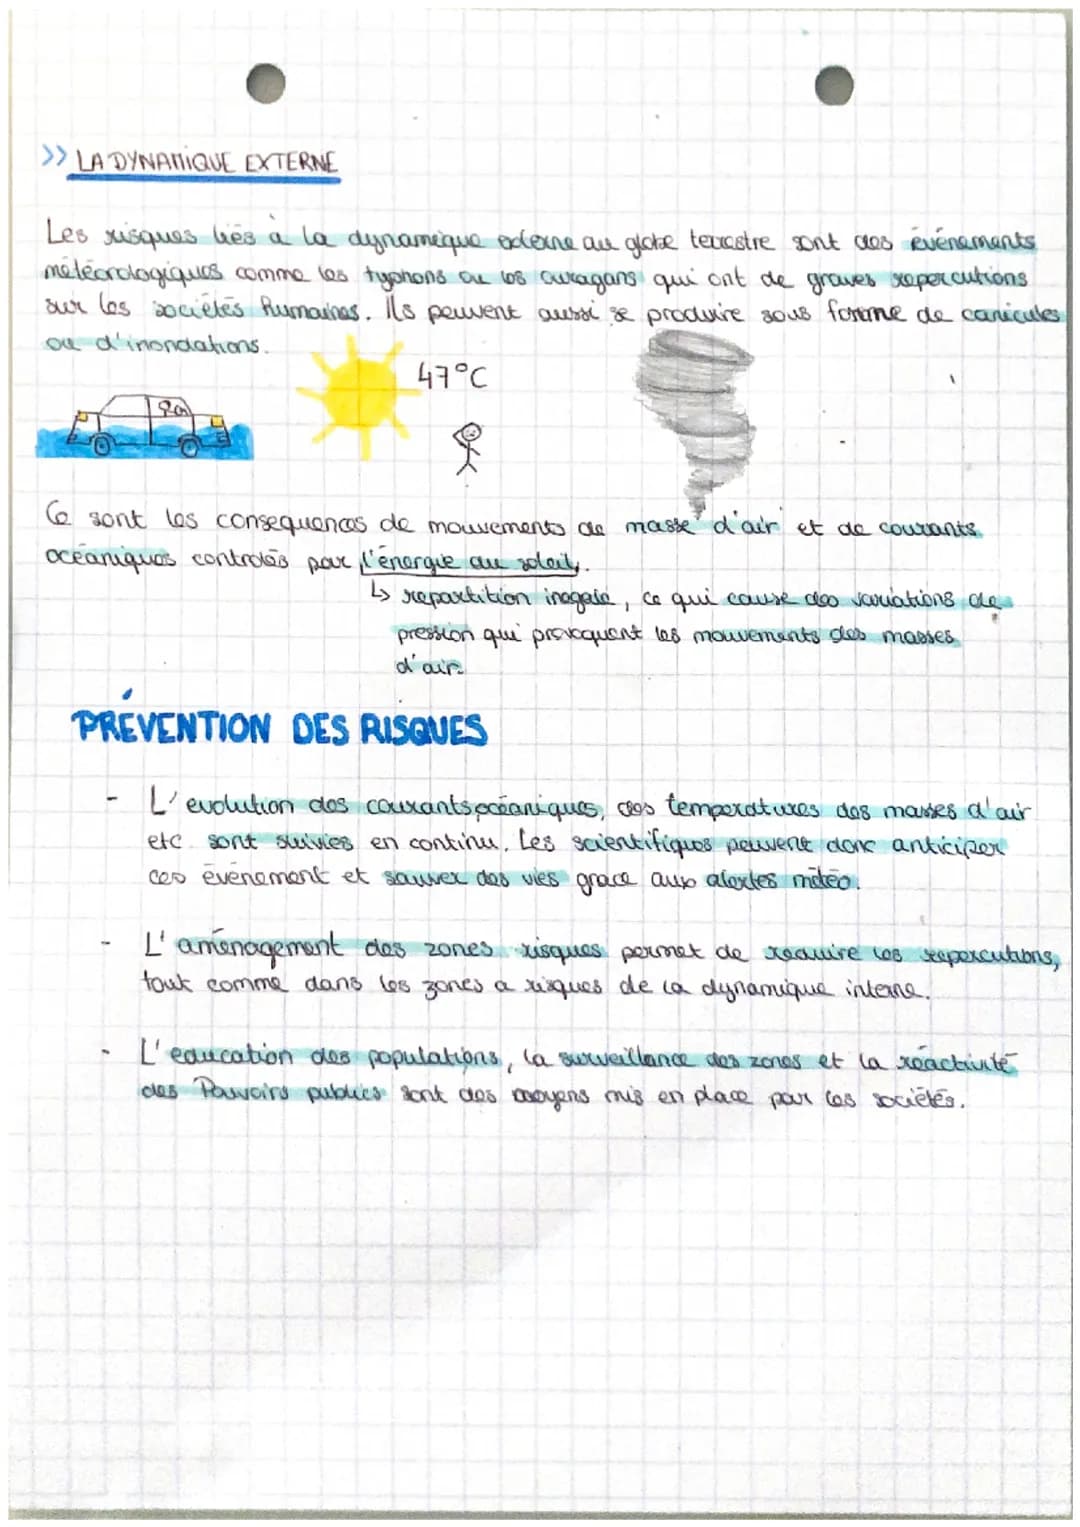 >> LA DYNAMIQUE EXTERNE
Les risques liés à la dynamique externe au globe terrestre sont des événements
météorologiques comme les typhons ou les ouragans qui ont de graves repercutions
sur les sociétés humaines. Ils peuvent aussi se produire sous forme de canicules
ou d'inondations.
47°C
Ce sont les consequences de mouvements de masse d'air et de courants
océaniques controlés par l'énergie du soleil.
↳ repartition inegale, ce qui cause des variations de
pression qui provoquent les mouvements des masses
d'air.
PRÉVENTION DES RISQUES
- L'evolution des courants océaniques, des temperatures des masses d'air
etc. sont suivies en continu. Les scientifiques peuvent donc anticiper
ces évenement et sauver des vies grace aux alertes météo.
- L'aménagement des zones risques permet de reduire les repercutions,
tout comme dans les zones a risques de la dynamique interne.
- L'education des populations, la surveillance des zones et la réactivité
des Pouvoirs publics sont des moyens mis en place par les sociétés.